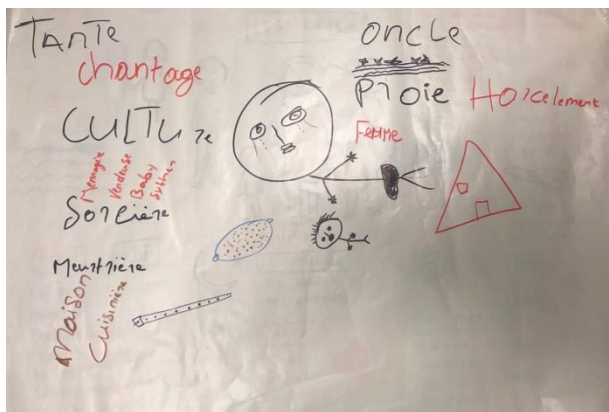 TANTE
chantage
ONCLE
PROIE HORcelement
CULTURE
Femme
Mennagère
Vendeuse
Baby
sytheer
SORcière
Meurtrière
Maison
cuisinière